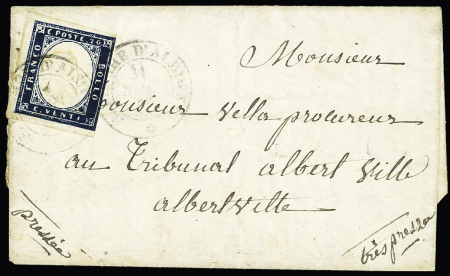 C. POSTE 20
FRANCO
BOLLO
C. VENTI
Monsieur
monsieur vella procureur
au Tribunal albert ville
albertville
pressée
très pressée